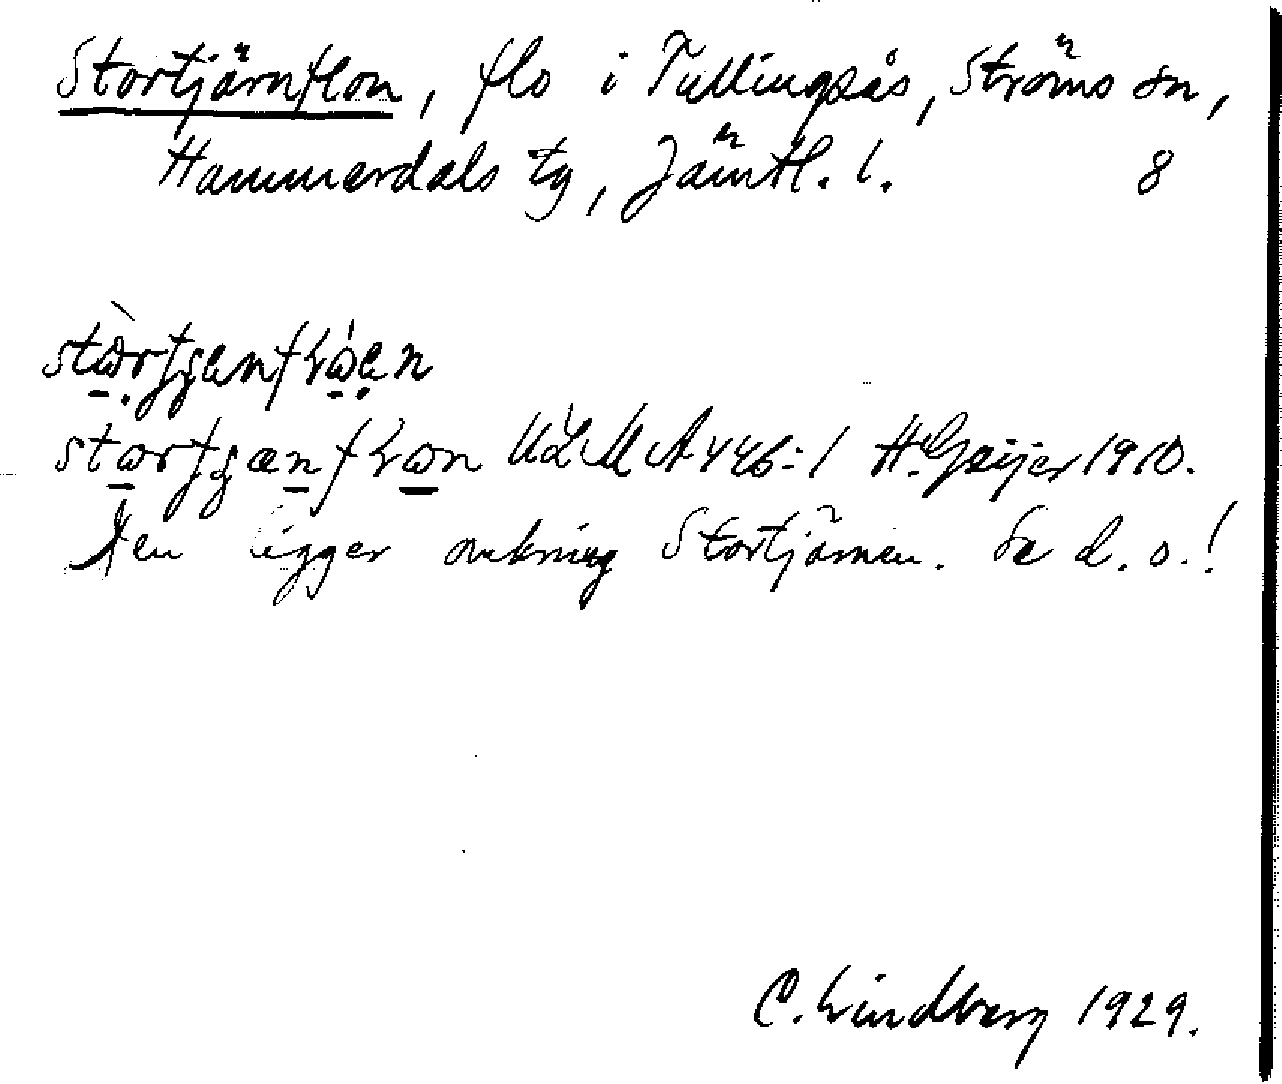 Stortjärnflon, flo i Tullingsås, Ströms sn,
Hammerdals tg, Jämtl. l. 8
ULMA 446:1 H. Geijer 1910.
Den ligger omkring Stortjärnen. Se d. o.!
C. Lindberg 1929.